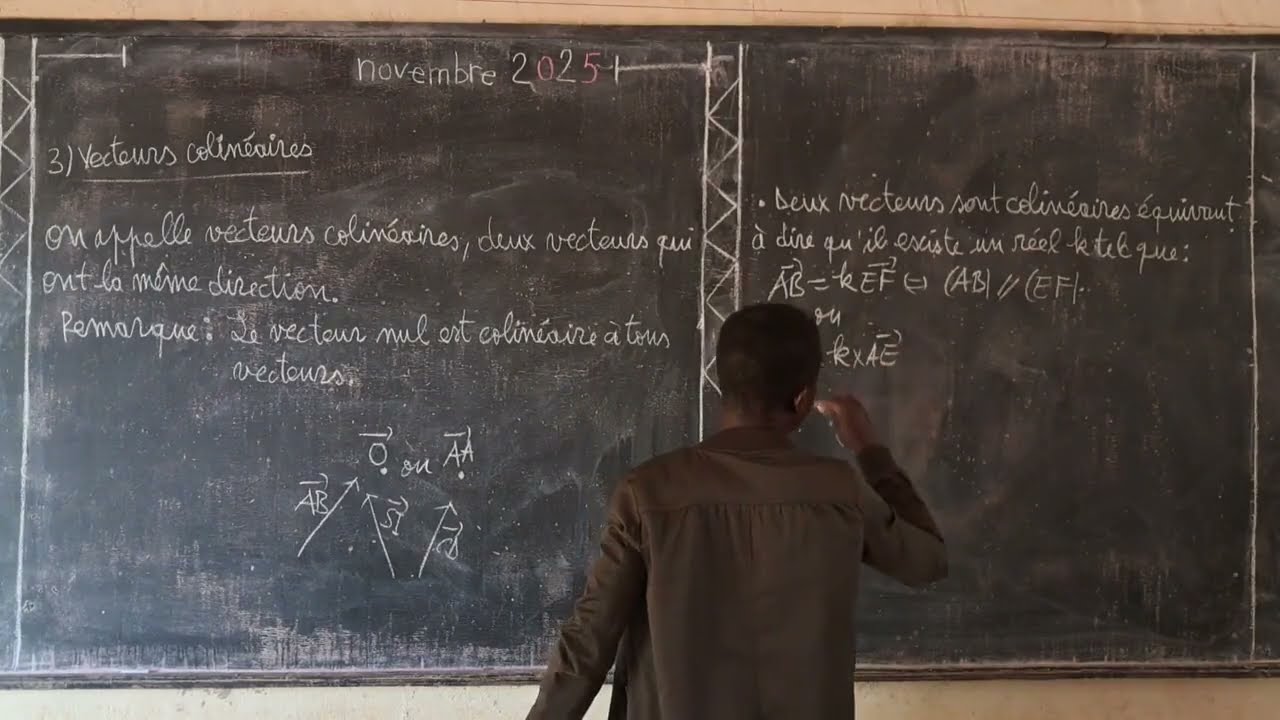 novembre 2025
3) Vecteurs colinéaires
On appelle vecteurs colinéaires, deux vecteurs qui
ont la même direction.
Remarque : Le vecteur nul est colinéaire à tous
vecteurs.
0⃗ ou A⃗A⃗
A⃗B⃗
S⃗I⃗
• Deux vecteurs sont colinéaires équivaut
à dire qu'il existe un réel k tel que :
A⃗B⃗ = k E⃗F⃗ ⇔ (AB) // (EF).
ou
k x A⃗E⃗